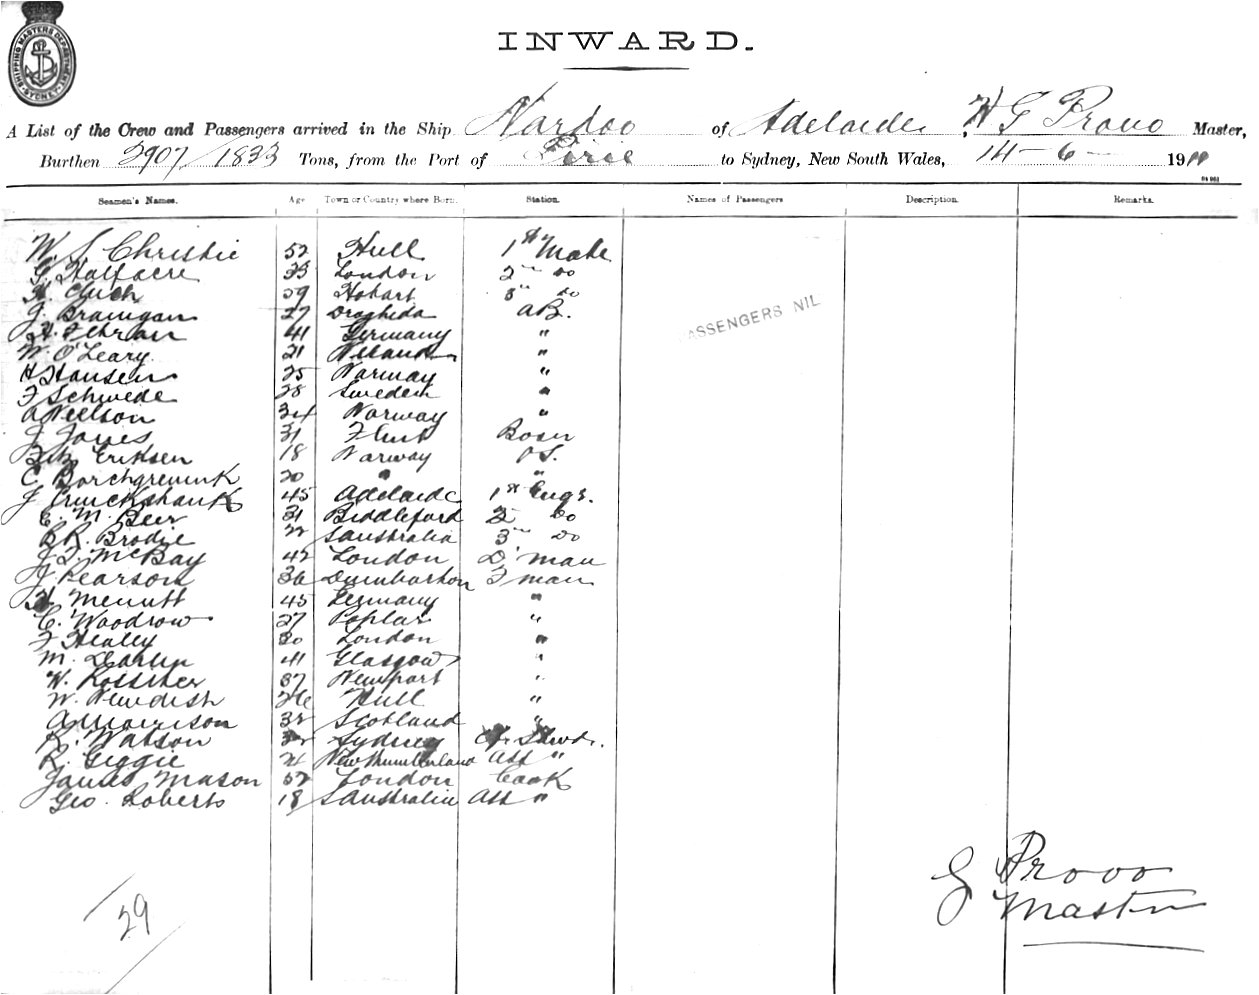 SHIPPING MASTERS DEPARTMENT SYDNEY
INWARD.
A List of the Crew and Passengers arrived in the Ship Nardoo of Adelaide, H G Provo Master,
Burthen 2907/1833 Tons, from the Port of Pirie to Sydney, New South Wales, 14-6- 19
Seamen's Names. Age Town or Country where Born. Station. Names of Passengers Description. Remarks.
W. S. Christie 52 Hull 1st Mate
G. Halfacre 33 London 2nd do
H. 29 Hobart 3rd do
J. Branigan 27 Drogheda AB.
41 Germany "
W. O'Leary. 21 "
H Hansen 25 Norway "
F Schwede 28 Sweden "
A Neilson Norway "
J Jones 31 Flint Bosn
Eriksen 18 Norway OS.
C Borchgrevink 20 " "
J Cruickshank 45 Adelaide 1st Engr.
E. M. Beer 31 Biddleford 2 Do
B R. Brodie 22 S Australia 3rd Do
J. T. McBay 42 London D'man
J Pearson 36 Dumbarton F man
H Merritt 45 Germany "
C. Woodrow 27 Poplar "
F Healey 30 London "
M. 41 Glasgow "
W. Rossiter 37 Newport "
W. 26 Hull "
A Morrison 32 Scotland "
R. Watson Sydney Stwd.
R. Geggie 21 Asst "
James Mason 52 London Cook
Geo. Roberts 18 S Australia Asst "
PASSENGERS NIL
29
G Provo
Master